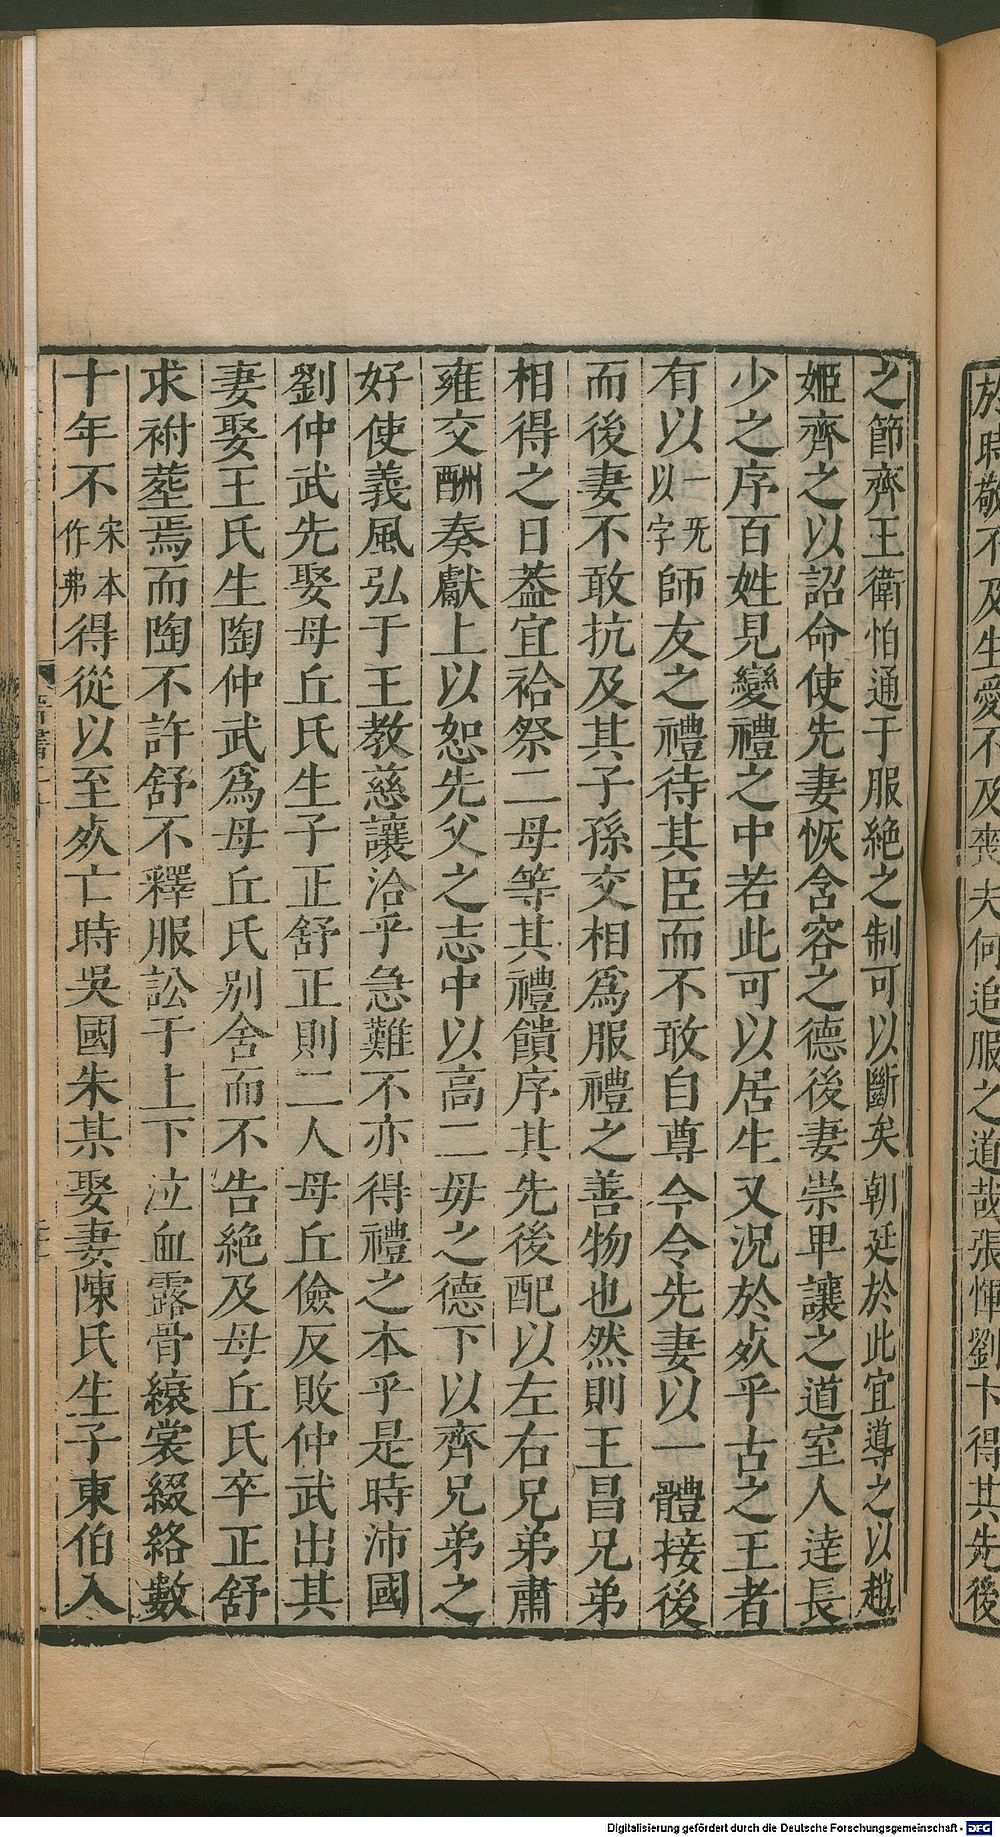 於時敬不及生愛不及喪夫何追服之道哉張惲劉卞得其先後
之節齊王衛怕通于服絶之制可以斷矣朝廷於此宜導之以趙
姬齊之以詔命使先妻恢含容之德後妻崇卑讓之道室人達長
少之序百姓見變禮之中若此可以居生又況於死乎古之王者
有以一旡以字師友之禮待其臣而不敢自尊今令先妻以一體接後
而後妻不敢抗及其子孫交相爲服禮之善物也然則王昌兄弟
相得之日葢宜祫祭二母等其禮饋序其先後配以左右兄弟肅
雍交酬奏獻上以恕先父之志中以高二毋之德下以齊兄弟之
好使義風弘于王教慈讓洽乎急難不亦得禮之本乎是時沛國
劉仲武先娶母丘氏生子正舒正則二人母丘儉反敗仲武出其
妻娶王氏生陶仲武爲母丘氏别舍而不告絶及母丘氏卒正舒
求祔塟焉而陶不許舒不釋服訟于上下泣血露骨縗裳綴絡數
十年不宋本作弗得從以至死亡時吳國朱某娶妻陳氏生子東伯入
Digitalisierung gefördert durch die Deutsche Forschungsgemeinschaft - DFG